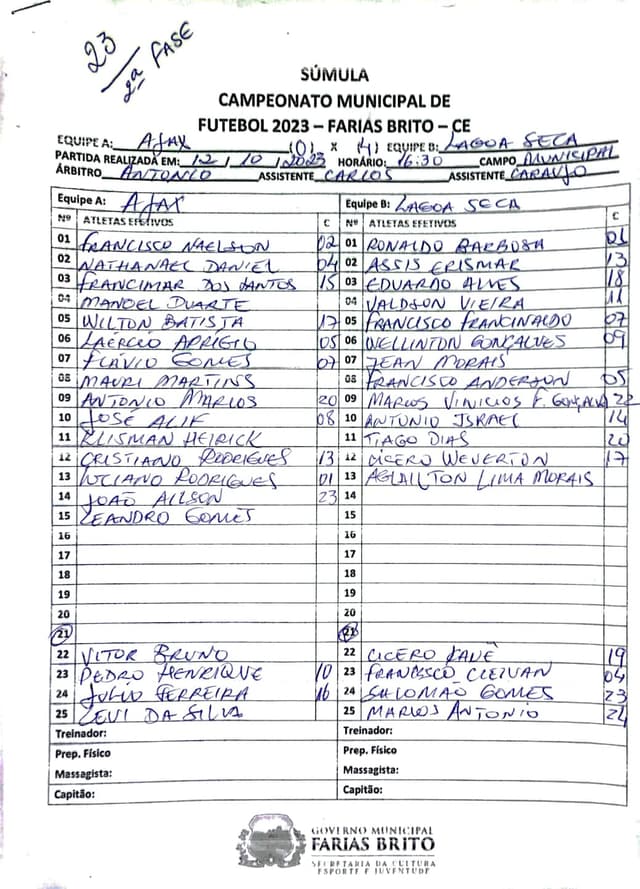 23
2ª FASE
SÚMULA
CAMPEONATO MUNICIPAL DE
FUTEBOL 2023 – FARIAS BRITO – CE
EQUIPE A: AJAX (0) X (4) EQUIPE B: LAGOA SECA
PARTIDA REALIZADA EM: 12 / 10 / 2023 HORÁRIO: 16:30 CAMPO MUNICIPAL
ÁRBITRO ANTONIO ASSISTENTE CARLOS ASSISTENTE CARAUJO
Equipe A: AJAX Equipe B: LAGOA SECA
Nº ATLETAS EFETIVOS C Nº ATLETAS EFETIVOS C
01 FRANCISCO NAELSON 02 01 RONALDO BARBOSA 01
02 NATHANAEL DANIEL 04 02 ASSIS ERISMAR 13
03 FRANCIMAR DOS SANTOS 15 03 EDUARDO ALVES 18
04 MANOEL DUARTE 04 VALDSON VIEIRA 11
05 WILTON BATISTA 17 05 FRANCISCO FRANCINALDO 07
06 LAÉRCIO APRIGIO 05 06 WELLINTON GONÇALVES 09
07 FLÁVIO GOMES 07 07 JEAN MORAIS
08 MAURI MARTINS 08 FRANCISCO ANDERSON 05
09 ANTONIO MARLOS 20 09 MARCOS VINICIOS F. GONÇALVES 22
10 JOSÉ ALIF 08 10 ANTONIO ISRAEL 14
11 KLISMAN HEIRICK 11 TIAGO DIAS 20
12 CRISTIANO RODRIGUES 13 12 CICERO WEVERTON 17
13 LUCIANO RODRIGUES 01 13 AGLAILTON LIMA MORAIS
14 JOÃO ALISON 23 14
15 LEANDRO GOMES 15
16 16
17 17
18 18
19 19
20 20
21 21
22 VITOR BRUNO 22 CICERO KAUÊ 19
23 PEDRO HENRIQUE 10 23 FRANCISCO CLEIVAN 04
24 JULIO FERREIRA 16 24 SALOMÃO GOMES 23
25 LEVI DA SILVA 25 MARCOS ANTONIO 21
Treinador: Treinador:
Prep. Físico Prep. Físico:
Massagista: Massagista:
Capitão: Capitão:
GOVERNO MUNICIPAL
FARIAS BRITO
SECRETARIA DA CULTURA
ESPORTE E JUVENTUDE